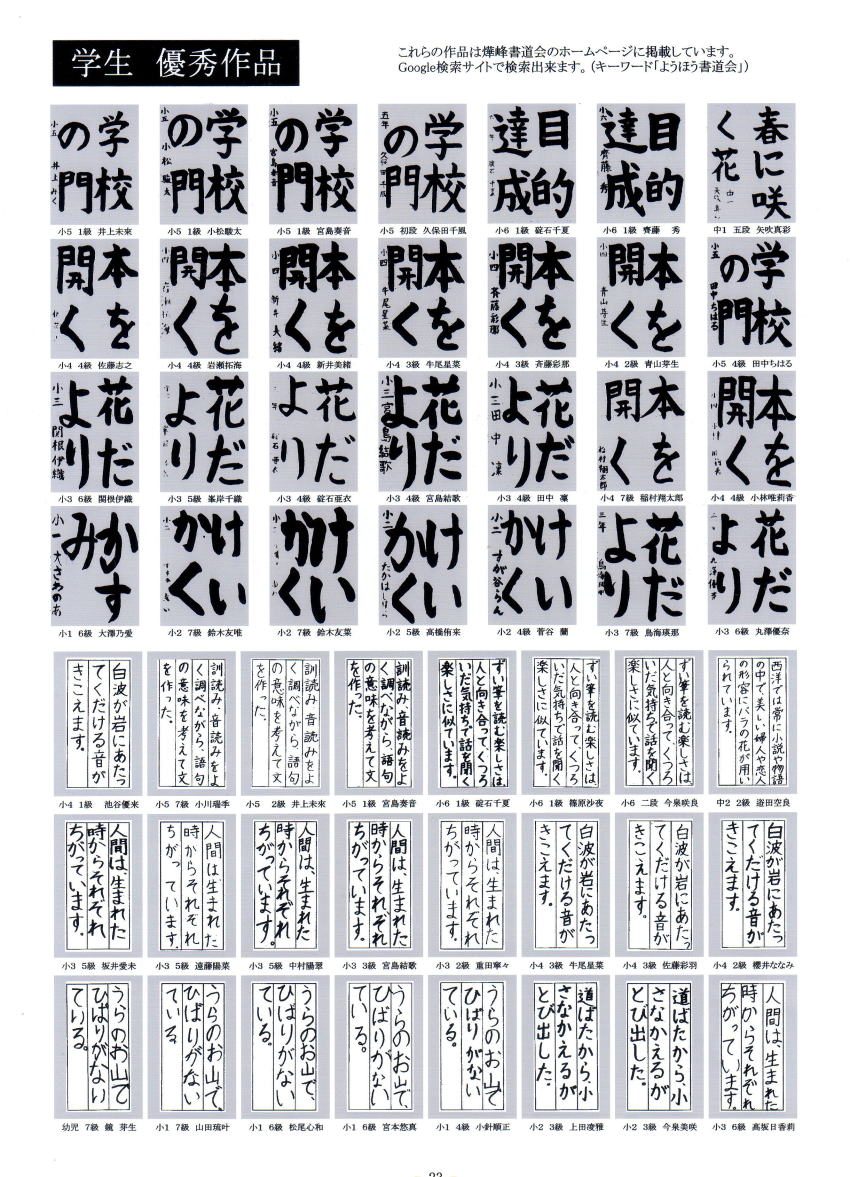 学生 優秀作品
これらの作品は燁峰書道会のホームページに掲載しています。
Google検索サイトで検索出来ます。(キーワード「ようほう書道会」)
学校
の門
小五 井上みく
小5 1級 井上未來
学校
の門
小五 小松駿太
小5 1級 小松駿太
学校
の門
小五 宮島奏音
小5 1級 宮島奏音
学校
の門
五年 久保田千風
小5 初段 久保田千風
目的
達成
小6 1級 碇石千夏
目的
達成
小六 齊藤秀
小6 1級 齊藤 秀
春に咲
く花
中1 五段 矢吹真彩
本を
開く
小4 4級 佐藤志之
本を
開く
小4 4級 岩瀬拓海
本を
開く
小四 新井美緒
小4 4級 新井美緒
本を
開く
小四 牛尾星菜
小4 3級 牛尾星菜
本を
開く
小四 斉藤彩那
小4 3級 斉藤彩那
本を
開く
小四 青山芽生
小4 2級 青山芽生
学校
の門
小五 田中ちはる
小5 4級 田中ちはる
花だ
より
小三 関根伊織
小3 6級 関根伊織
花だ
より
小3 5級 峯岸千織
花だ
より
小3 4級 碇石亜衣
花だ
より
小三 宮島結歌
小3 4級 宮島結歌
花だ
より
小三 田中凜
小3 4級 田中 凜
本を
開く
稲村翔太郎
小4 7級 稲村翔太郎
本を
開く
小4 4級 小林唯莉香
かす
み
小一 大さわのあ
小1 6級 大澤乃愛
けい
かく
小2 7級 鈴木友唯
けい
かく
小2 7級 鈴木友菜
けい
かく
小2 5級 高橋侑来
けい
かく
小二 すが谷らん
小2 4級 菅谷 蘭
花だ
より
三年 鳥海瑛那
小3 7級 鳥海瑛那
花だ
より
小3 6級 丸澤優奈
白波が岩にあたっ
てくだける音が
きこえます。
小4 1級 池谷優来
訓読み、音読みをよ
く調べながら、語句
の意味を考えて文
を作った。
小5 7級 小川瑞季
訓読み、音読みをよ
く調べながら、語句
の意味を考えて文
を作った。
小5 2級 井上未來
訓読み、音読みをよ
く調べながら、語句
の意味を考えて文
を作った。
小5 1級 宮島奏音
ずい筆を読む楽しさは、
人と向き合って、くつろ
いだ気持ちで話を聞く
楽しさに似ています。
小6 1級 碇石千夏
ずい筆を読む楽しさは、
人と向き合って、くつろ
いだ気持ちで話を聞く
楽しさに似ています。
小6 1級 篠原沙夜
ずい筆を読む楽しさは、
人と向き合って、くつろ
いだ気持ちで話を聞く
楽しさに似ています。
小6 二段 今泉咲良
西洋では常に小説や物語
の中で美しい婦人や恋人
の形容にバラの花が用い
られています。
中2 2級 遊田空良
人間は、生まれた
時からそれぞれ
ちがっています。
小3 5級 坂井愛未
人間は生まれた
時からそれぞれ
ちがっています。
小3 5級 遠藤陽菜
人間は、生まれた
時からそれぞれ
ちがっています。
小3 5級 中村陽翠
人間は、生まれた
時からそれぞれ
ちがっています。
小3 3級 宮島結歌
人間は、生まれた
時からそれぞれ
ちがっています。
小3 2級 重田寧々
白波が岩にあたっ
てくだける音が
きこえます。
小4 3級 牛尾星菜
白波が岩にあたっ
てくだける音が
きこえます。
小4 3級 佐藤彩羽
白波が岩にあたっ
てくだける音が
きこえます。
小4 2級 櫻井ななみ
うらのお山で
ひばりがない
ている。
幼児 7級 鏡 芽生
うらのお山で、
ひばりがない
ている。
小1 7級 山田琉叶
うらのお山で、
ひばりがない
ている。
小1 6級 松尾心和
うらのお山で、
ひばりがない
ている。
小1 6級 宮本悠真
うらのお山で
ひばりがない
ている。
小1 4級 小針順正
道ばたから、小
さなかえるが
とび出した。
小2 3級 上田凌雅
道ばたから、小
さなかえるが
とび出した。
小2 3級 今泉美咲
人間は、生まれた
時からそれぞれ
ちがっています。
小3 6級 高坂日香莉